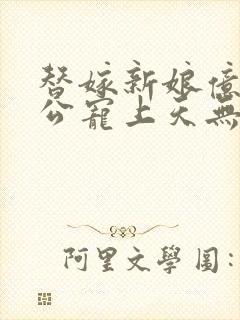 替嫁新娘億
公寵上天無
阿里文學圖: